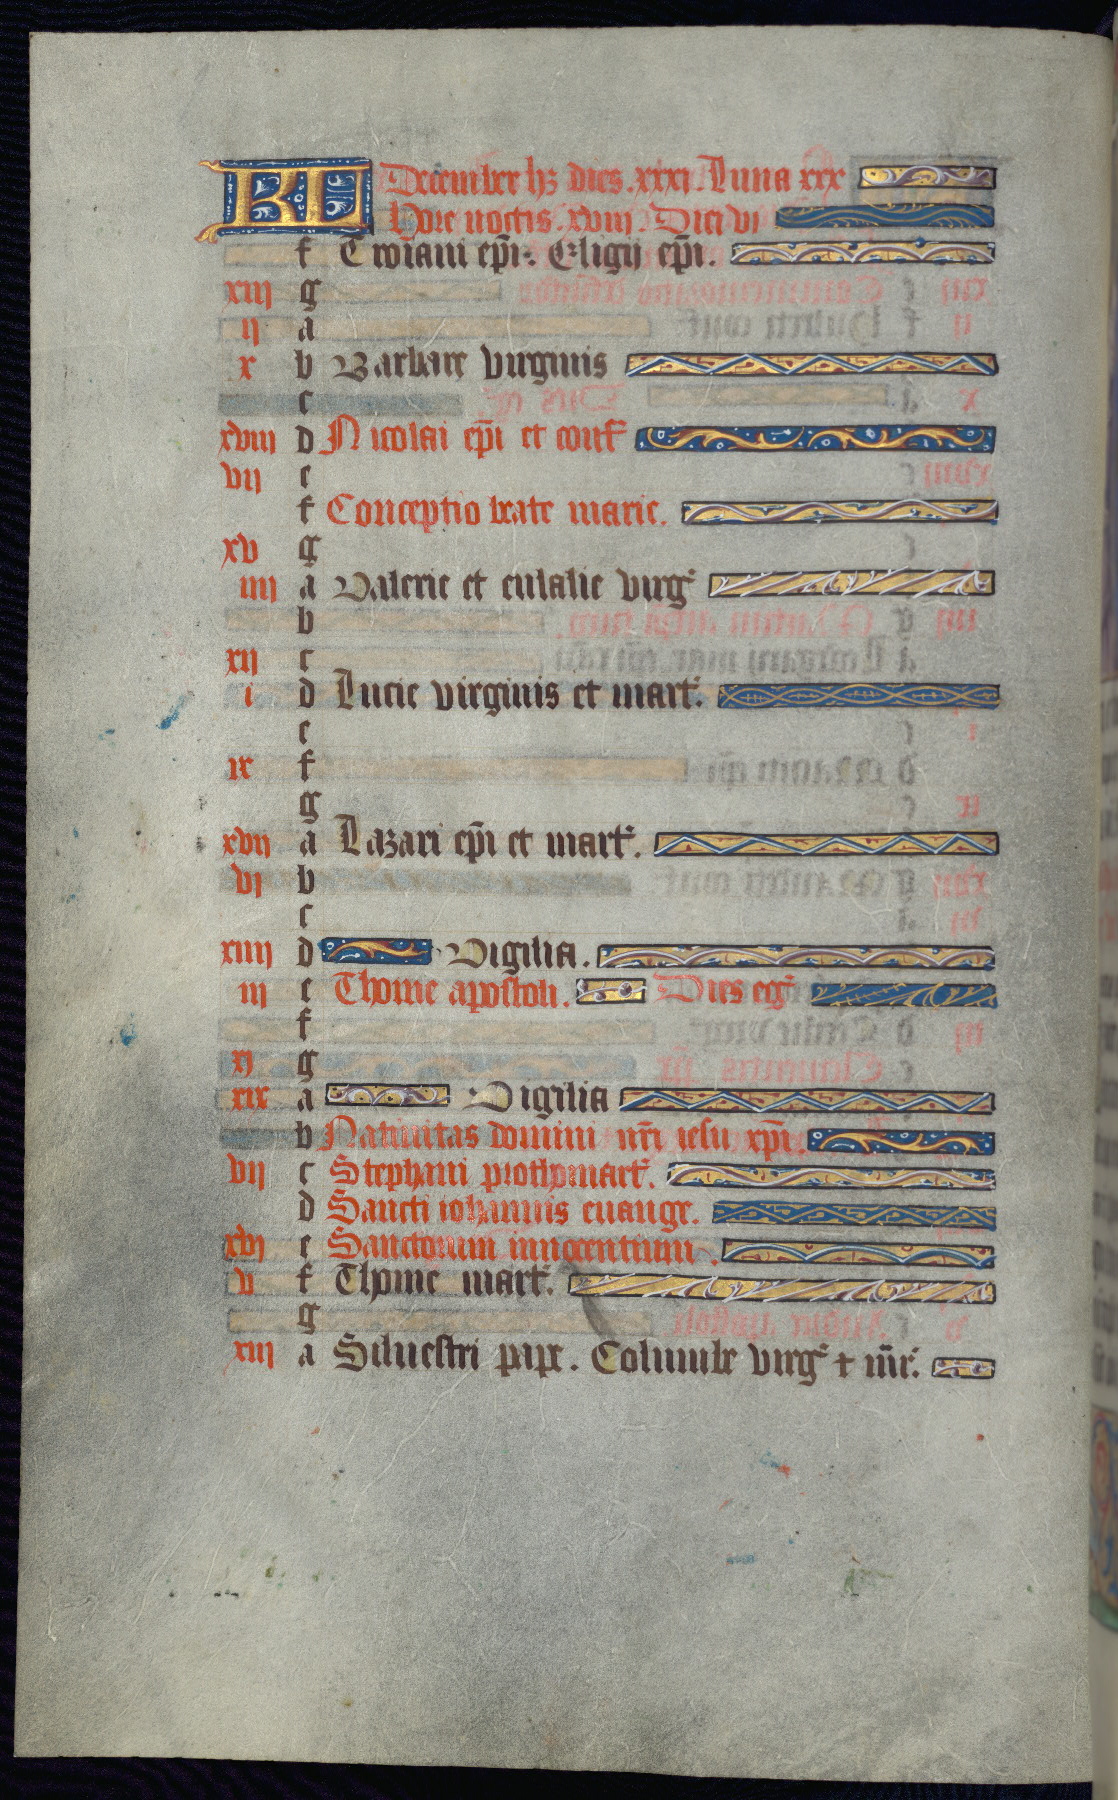 KL December hꝫ dies .xxxi. Luna xxx
Hore noctis .xviii. Diei vi
f Troiani ep̄i. Eligii ep̄i.
xiii g
ii a
x b Barbare virginis
c
xviii d Nicolai ep̄i et conf
vii e
f Conceptio beate marie.
xv g
iiii a Valerie et eulalie virg
b
xii c
i d Lucie virginis et mart.
e
ix f
g
xvii a Lazari ep̄i et mart.
vi b
c
xiiii d Vigilia.
iii e Thome apostoli. Dies eg
f
xi g
xix a Vigilia
b Natiuitas domini nr̄i iesu xp̄i.
vii c Stephani prothomart.
d Sancti iohannis euange.
xvi e Sanctorum innocentium.
v f Thome mart.
g
xiii a Siluestri pape. Columbe virg